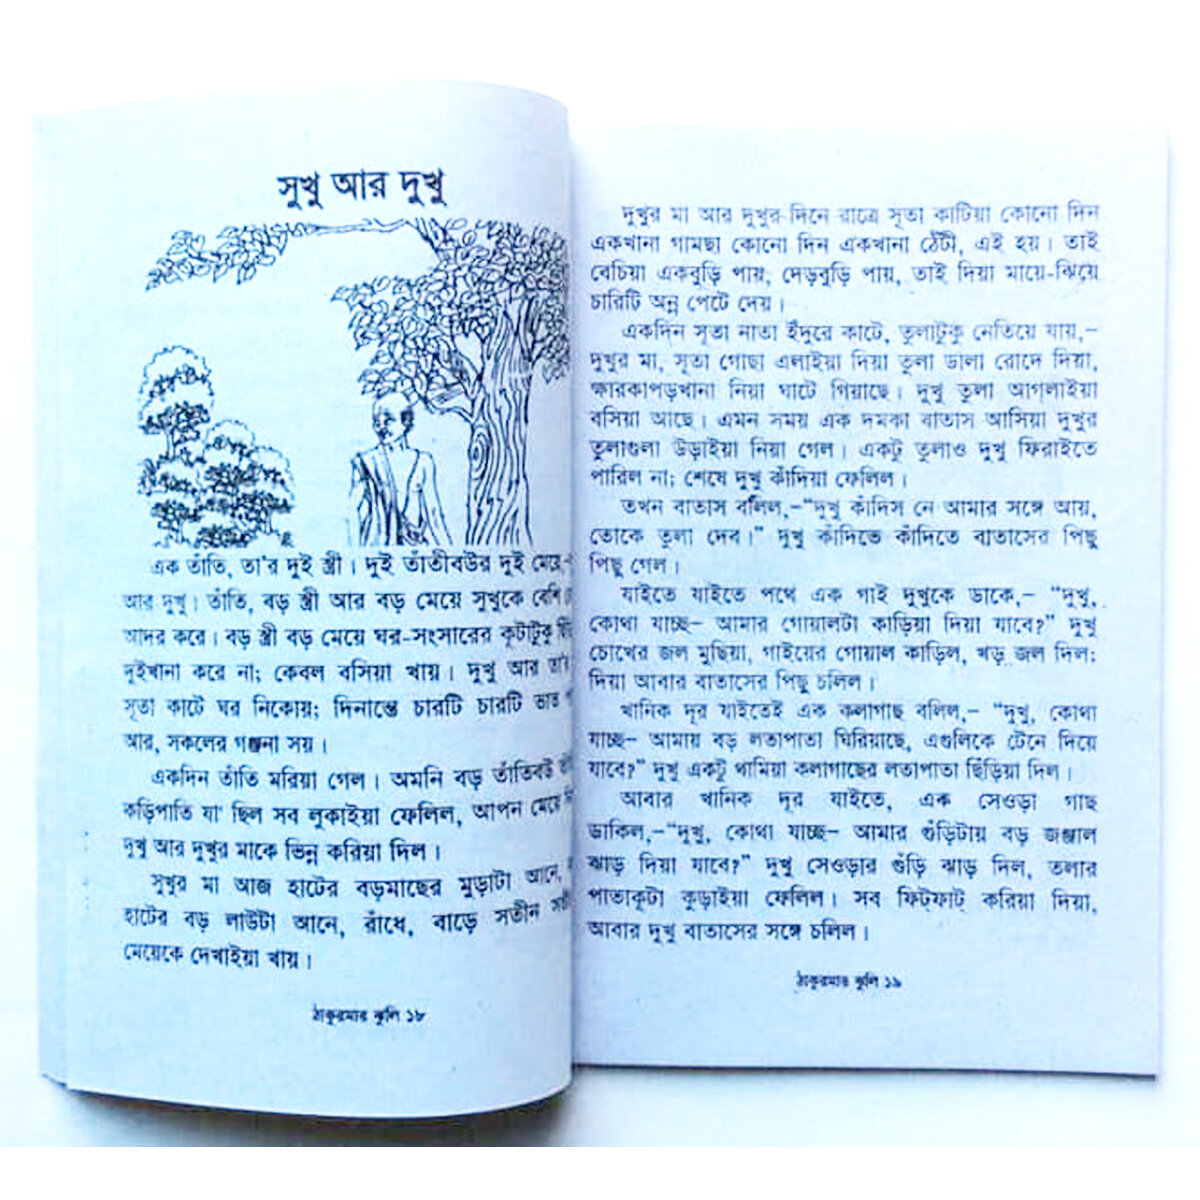 সুখু আর দুখু
এক তাঁতি, তা'র দুই স্ত্রী। দুই তাঁতীবউর দুই মেয়ে,
আর দুখু। তাঁতি, বড় স্ত্রী আর বড় মেয়ে সুখুকে বেশি
আদর করে। বড় স্ত্রী বড় মেয়ে ঘর-সংসারের কূটাটুকু
দুইখানা করে না; কেবল বসিয়া খায়। দুখু আর তা'র
সূতা কাটে ঘর নিকোয়; দিনান্তে চারটি চারটি ভাত
আর, সকলের গঞ্জনা সয়।
একদিন তাঁতি মরিয়া গেল। অমনি বড় তাঁতিবউ
কড়িপাতি যা' ছিল সব লুকাইয়া ফেলিল, আপন মেয়ে
দুখু আর দুখুর মাকে ভিন্ন করিয়া দিল।
সুখুর মা আজ হাটের বড়মাছের মুড়াটা আনে,
হাটের বড় লাউটা আনে, রাঁধে, বাড়ে সতীন
মেয়েকে দেখাইয়া খায়।
ঠাকুরমার ঝুলি ১৮
দুখুর মা আর দুখুর-দিনে রাত্রে সূতা কাটিয়া কোনো দিন
একখানা গামছা কোনো দিন একখানা ঠেঁটী, এই হয়। তাই
বেচিয়া একবুড়ি পায়; দেড়বুড়ি পায়, তাই দিয়া মায়ে-ঝিয়ে
চারিটি অন্ন পেটে দেয়।
একদিন সূতা নাতা ইঁদুরে কাটে, তুলাটুকু নেতিয়ে যায়,–
দুখুর মা, সূতা গোছা এলাইয়া দিয়া তুলা ডালা রোদে দিয়া,
ক্ষারকাপড়খানা নিয়া ঘাটে গিয়াছে। দুখু তুলা আগ্‌লাইয়া
বসিয়া আছে। এমন সময় এক দমকা বাতাস আসিয়া দুখুর
তুলাগুলা উড়াইয়া নিয়া গেল। একটু তুলাও দুখু ফিরাইতে
পারিল না; শেষে দুখু কাঁদিয়া ফেলিল।
তখন বাতাস বলিল,–“দুখু কাঁদিস নে আমার সঙ্গে আয়,
তোকে তুলা দেব।” দুখু কাঁদিতে কাঁদিতে বাতাসের পিছু
পিছু গেল।
যাইতে যাইতে পথে এক গাই দুখুকে ডাকে,– “দুখু,
কোথা যাচ্ছ– আমার গোয়ালটা কাড়িয়া দিয়া যাবে?” দুখু
চোখের জল মুছিয়া, গাইয়ের গোয়াল কাড়িল, খড় জল দিল;
দিয়া আবার বাতাসের পিছু চলিল।
খানিক দূর যাইতেই এক কলাগাছ বলিল,– “দুখু, কোথা
যাচ্ছ– আমায় বড় লতাপাতা ঘিরিয়াছে, এগুলিকে টেনে দিয়ে
যাবে?” দুখু একটু থামিয়া কলাগাছের লতাপাতা ছিঁড়িয়া দিল।
আবার খানিক দূর যাইতে, এক সেওড়া গাছ
ডাকিল,–“দুখু, কোথা যাচ্ছ– আমার গুঁড়িটায় বড় জঞ্জাল
ঝাড় দিয়া যাবে?” দুখু সেওড়ার গুঁড়ি ঝাড় দিল, তলার
পাতাকূটা কুড়াইয়া ফেলিল। সব ফিট্‌ফাট্‌ করিয়া দিয়া,
আবার দুখু বাতাসের সঙ্গে চলিল।
ঠাকুরমার ঝুলি ১৯